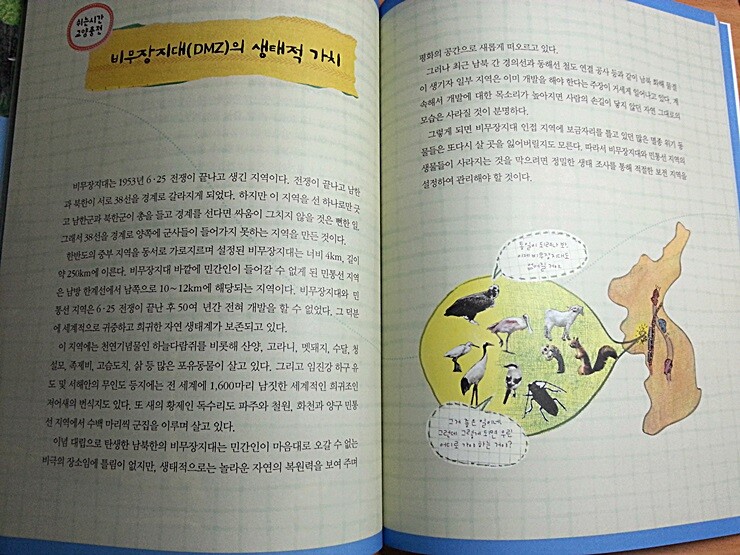 쉬는시간
교양충전
비무장지대(DMZ)의 생태적 가치
비무장지대는 1953년 6·25 전쟁이 끝나고 생긴 지역이다. 전쟁이 끝나고 남한
과 북한이 서로 38선을 경계로 갈라지게 되었다. 하지만 이 지역을 선 하나로만 긋
고 남한군과 북한군이 총을 들고 경계를 선다면 싸움이 그치지 않을 것은 뻔한 일.
그래서 38선을 경계로 양쪽에 군사들이 들어가지 못하는 지역을 만든 것이다.
한반도의 중부 지역을 동서로 가로지르며 설정된 비무장지대는 너비 4km, 길이
약 250km에 이른다. 비무장지대 바깥에 민간인이 들어갈 수 없게 된 민통선 지역
은 남방 한계선에서 남쪽으로 10~12km에 해당되는 지역이다. 비무장지대와 민
통선 지역은 6·25 전쟁이 끝난 후 50여 년간 전혀 개발을 할 수 없었다. 그 덕분
에 세계적으로 귀중하고 희귀한 자연 생태계가 보존되고 있다.
이 지역에는 천연기념물인 하늘다람쥐를 비롯해 산양, 고라니, 멧돼지, 수달, 청
설모, 족제비, 고슴도치, 삵 등 많은 포유동물이 살고 있다. 그리고 임진강 하구 유
도 및 서해안의 무인도 등지에는 전 세계에 1,600마리 남짓한 세계적인 희귀조인
저어새의 번식지도 있다. 또 새의 황제인 독수리도 파주와 철원, 화천과 양구 민통
선 지역에서 수백 마리씩 군집을 이루며 살고 있다.
이념 대립으로 탄생한 남북한의 비무장지대는 민간인이 마음대로 오갈 수 없는
비극의 장소임에 틀림이 없지만, 생태적으로는 놀라운 자연의 복원력을 보여 주며
평화의 공간으로 새롭게 떠오르고 있다.
그러나 최근 남북 간 경의선과 동해선 철도 연결 공사 등과 같이 남북 화해 물결
이 생기자 일부 지역은 이미 개발을 해야 한다는 주장이 거세게 일어나고 있다. 계
속해서 개발에 대한 목소리가 높아지면 사람의 손길이 닿지 않던 자연 그대로의
모습은 사라질 것이 분명하다.
그렇게 되면 비무장지대 인접 지역에 보금자리를 틀고 있던 많은 멸종 위기 동
물들은 또다시 살 곳을 잃어버릴지도 모른다. 따라서 비무장지대와 민통선 지역의
생물들이 사라지는 것을 막으려면 정밀한 생태 조사를 통해 적절한 보전 지역을
설정하여 관리해야 할 것이다.
통일이 되려나 봐!
이제 비무장지대도
없어질 거야.
그거 좋은 일이네.
그런데 그렇게 되면 우린
어디로 가야 하는 거야?